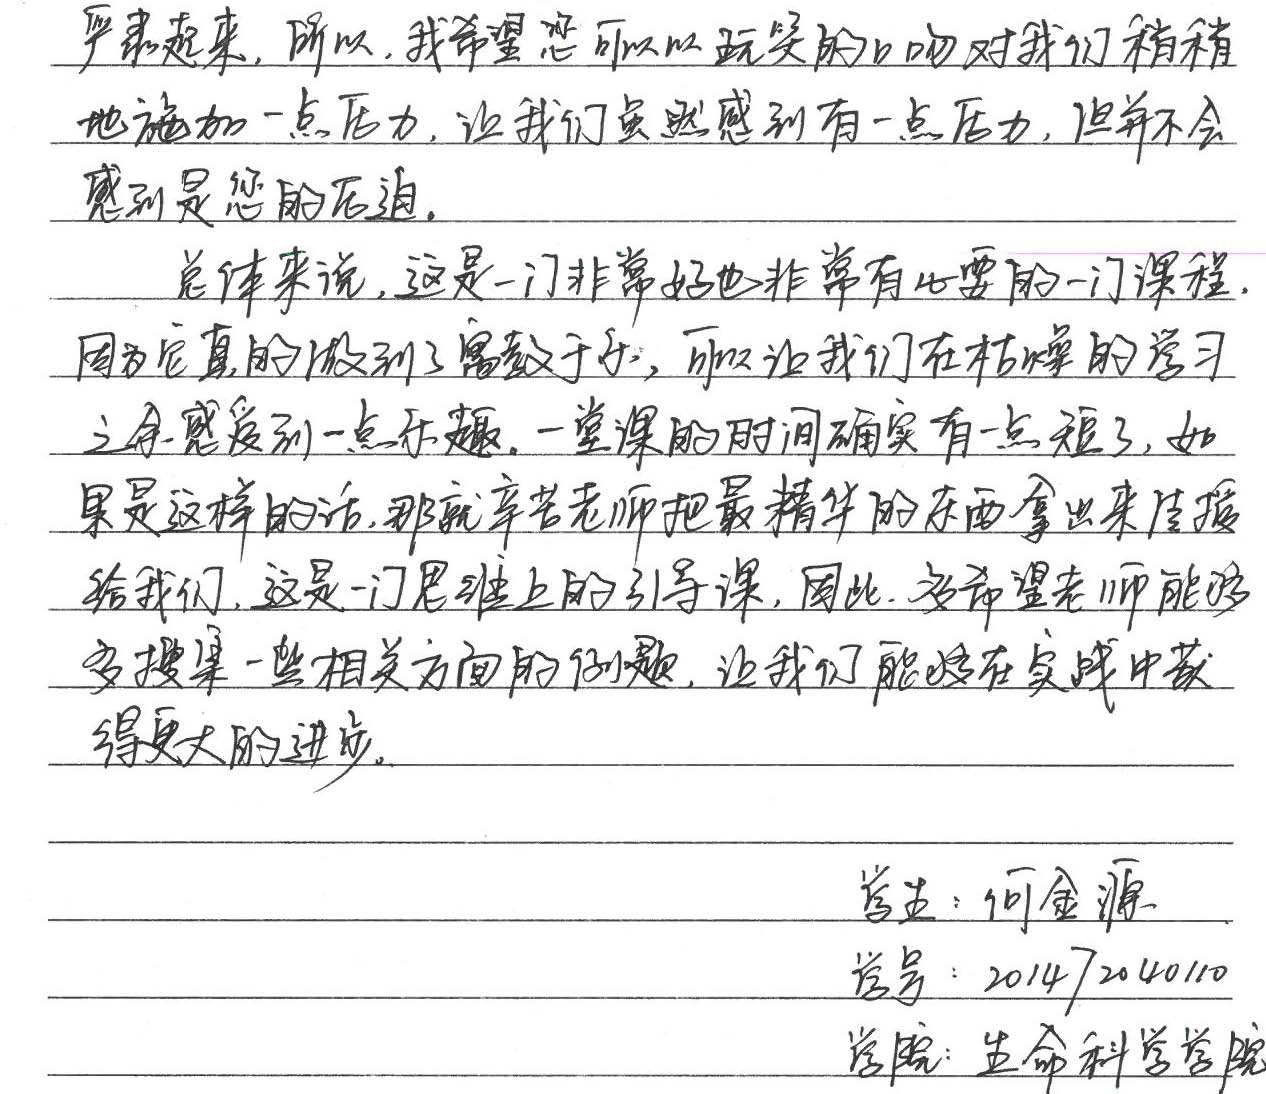 严肃起来,所以,我希望您可以以玩笑的口吻对我们稍稍
地施加一点压力,让我们虽然感到有一点压力,但并不会
感到是您的压迫。
总体来说,这是一门非常好也非常有必要的一门课程.
因为它真的做到了寓教于乐,可以让我们在枯燥的学习
之余感受到一点乐趣。一堂课的时间确实有一点短了,如
果是这样的话,那就辛苦老师把最精华的东西拿出来传授
给我们,这是一门思维上的引导课,因此.多希望老师能够
多搜集一些相关方面的例题,让我们能够在实战中获
得更大的进步。
学生:何金源
学号:201472040110
学院:生命科学学院